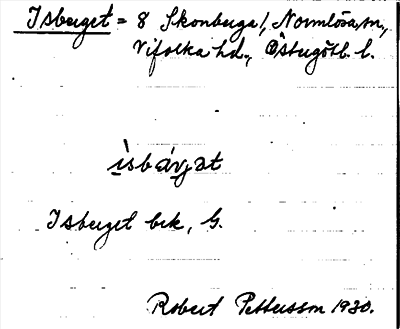 Isberget = 8 Skonberga 1, Normlösa sn,
Vifolka hd., Östergötl. l.
ìsbárjət
Isberget bek, G.
Robert Pettersson 1930.